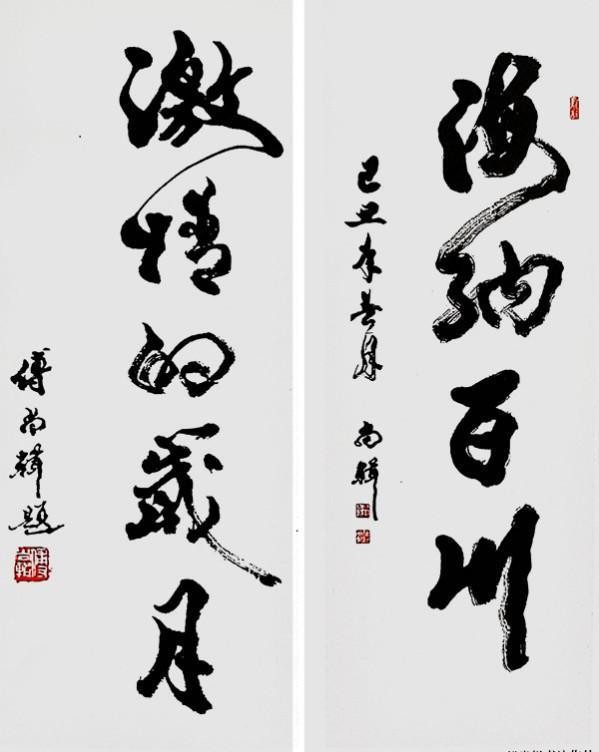 海纳百川
己丑年春月 尚辉
激情的岁月
傅尚辉题